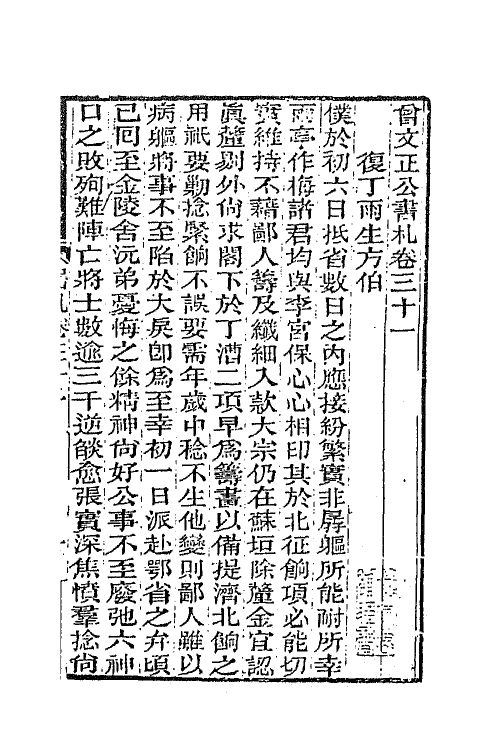 曾文正公書札卷三十一
復丁雨生方伯
僕於初六日抵省數日之內應接紛繁實非孱軀所能耐所幸
雨亭作梅諸君均與李宮保心心相印其於北征餉項必能切
實維持不藉鄙人籌及纖細入款大宗仍在蘇垣除釐金宜認
眞釐剔外尙求閣下於丁漕二項早爲籌畫以備提濟北餉之
用祇要勦捻緊餉不誤要需年歲中稔不生他變則鄙人雖以
病軀將事不至陷於大戾卽爲至幸初一日派赴鄂省之弁頃
已回至金陵舍沅弟憂悔之餘精神尙好公事不至廢弛六神
口之敗殉難陣亡將士數逾三千逆燄愈張實深焦憤羣捻尙